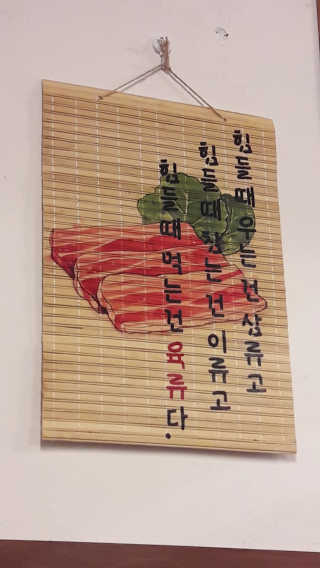 힘들때 우는건 삼류고
힘들때 참는건 이류고
힘들때 먹는건 육류다.